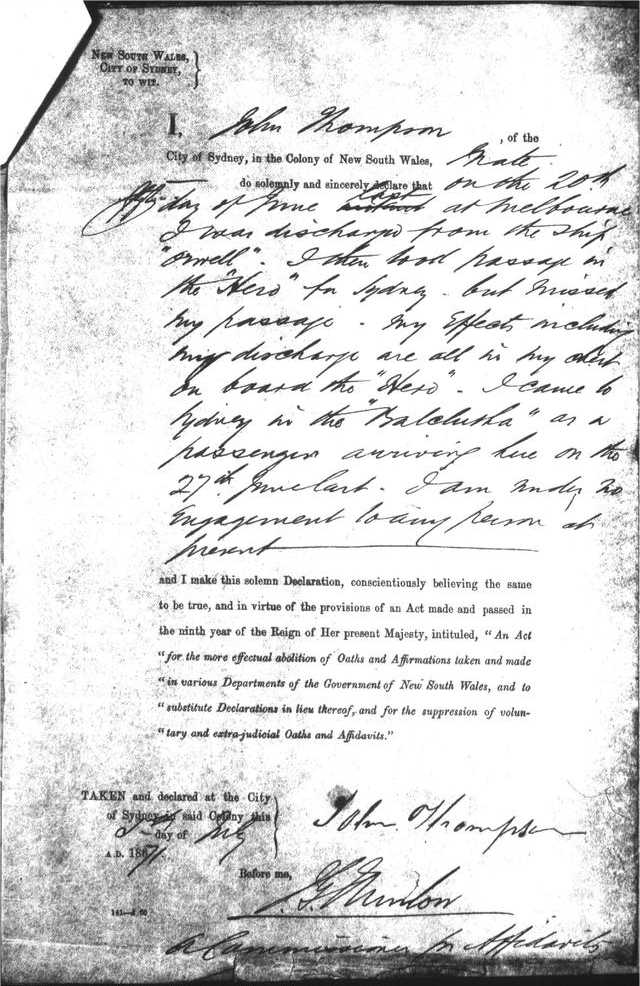 NEW SOUTH WALES,
CITY OF SYDNEY,
TO WIT.
I, John Thompson, of the
City of Sydney, in the Colony of New South Wales, Mate
do solemnly and sincerely declare that on the 20th
day of June last at Melbourne
I was discharged from the ship
"Orwell". I then took passage in
the "Hero" for Sydney - but missed
my passage - my effects including
my discharge are all in my chest
on board the "Hero". I came to
Sydney in the "Balclutha" as a
passenger arriving here on the
27th June last. I am under no
Engagement to any person at
present
and I make this solemn Declaration, conscientiously believing the same
to be true, and in virtue of the provisions of an Act made and passed in
the ninth year of the Reign of Her present Majesty, intituled, "An Act
"for the more effectual abolition of Oaths and Affirmations taken and made
"in various Departments of the Government of New South Wales, and to
"substitute Declarations in lieu thereof, and for the suppression of volun-
"tary and extra-judicial Oaths and Affidavits."
TAKEN and declared at the City
of Sydney in said Colony this
day of July
A.D. 186
John Thompson
Before me,
A Commissioner for Affidavits